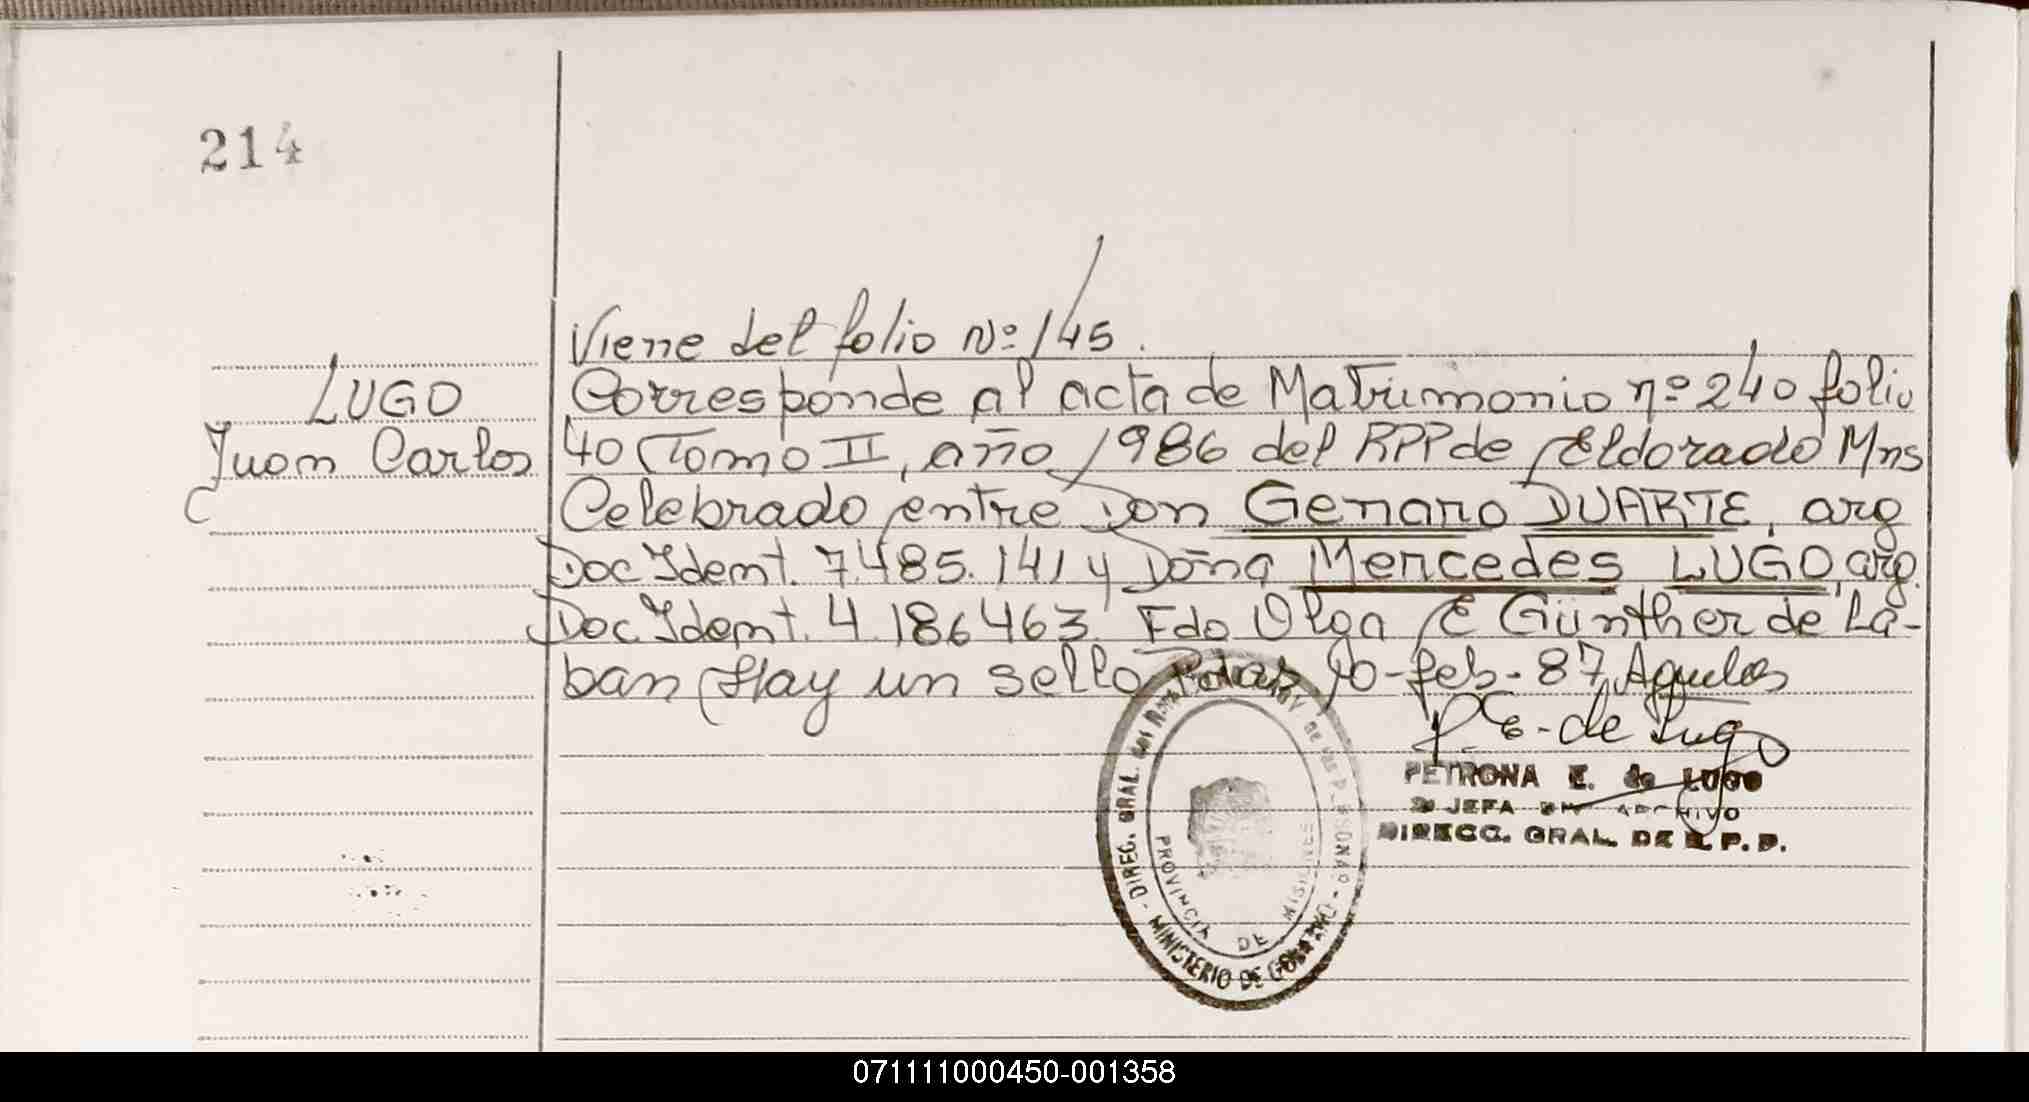 214
Viene del folio Nº 145.
LUGO
Juan Carlos
Corresponde al acta de Matrimonio nº 240 folio
40 Tomo II, año 1986 del RPP de Eldorado Mns
Celebrado entre Don Genaro DUARTE, arg
Doc Ident. 7.485.141 y Doña Mercedes LUGO, arg.
Doc Ident. 4.186463. Fdo Olga E Günther de La-
ban Hay un sello Pdas 10-feb-87,
P. E. de Lugo
PETRONA E. de LUGO
JEFA ARCHIVO
DIRECC. GRAL. DE R. P. P.
DIREC. GRAL. DE LAS PERSONAS
MINISTERIO DE GOBIERNO
PROVINCIA DE MISIONES
071111000450-001358